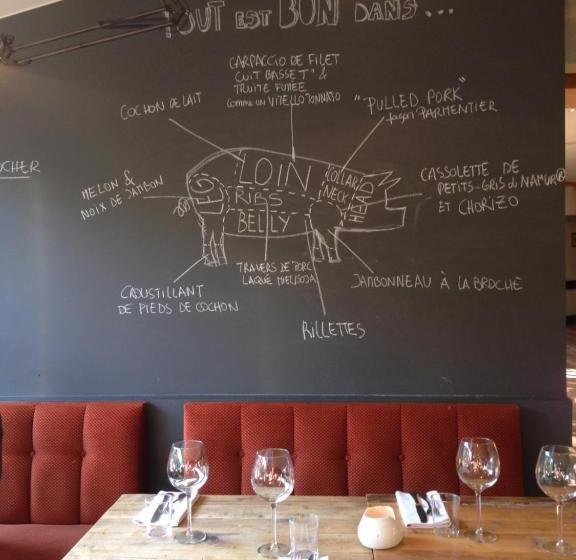 TOUT EST BON DANS...
CARPACCIO DE FILET
CUIT BASSE T° &
TRUITE FUMÉE
COMME UN VITELLO TONNATO
COCHON DE LAIT
"PULLED PORK"
façon PARMENTIER
OCHER
MELON &
NOIX DE JAMBON
CASSOLETTE DE
PETITS-GRIS DE NAMUR®
ET CHORIZO
LOIN
COLLAR
NECK
HEAD
LEG
RIBS
BELLY
TRAVERS DE PORC
LAQUÉ MIEL/SOJA
CROUSTILLANT
DE PIEDS DE COCHON
JAMBONNEAU À LA BROCHE
RILLETTES